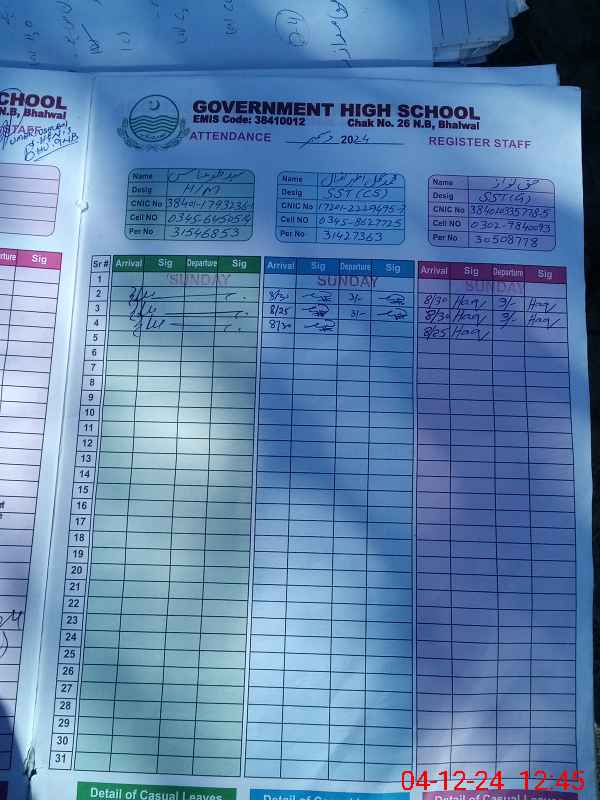 CHOOL
N.B, Bhalwal
STAFF
GOVERNMENT HIGH SCHOOL
EMIS Code: 38410012 Chak No. 26 N.B, Bhalwal
ATTENDANCE دسمبر 2024 REGISTER STAFF
Name
Desig H/M
CNIC No
Cell NO
Per No 31546853
Name
Desig SST (CS)
CNIC No
Cell NO 0345-8627725
Per No 31427363
Name حق نواز
Desig SST(G)
CNIC No
Cell NO 0302-7840093
Per No 30508778
rture Sig
Sr # Arrival Sig Departure Sig Arrival Sig Departure Sig Arrival Sig Departure Sig
1 SUNDAY SUNDAY SUNDAY
2 8/30 3/- 8/30 Haq 3/- Haq
3 8/25 3/- 8/30 Haq 3/- Haq
4 8/30 8/25 Haq
5
6
7
8
9
10
11
12
13
14
15
16
17
18
19
20
21
22
23
24
25
26
27
28
29
30
31
Detail of Casual Leaves Detail of Casual Leaves Detail of Casual Leaves
04-12-24 12:45